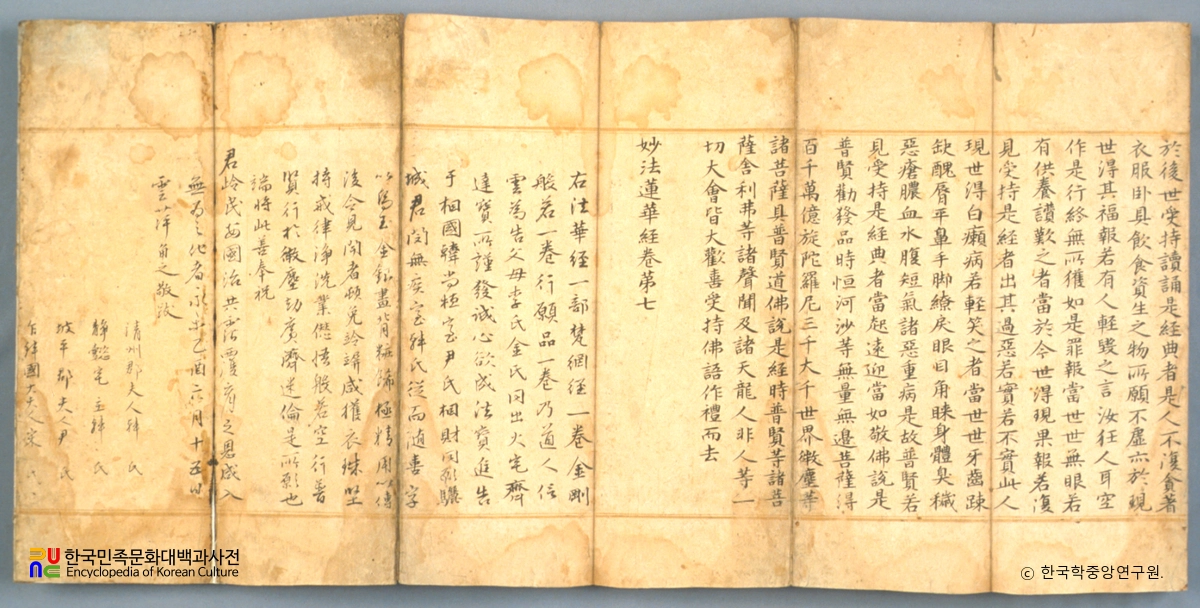 於後世受持讀誦是經典者是人不復貪著
衣服卧具飲食資生之物所願不虛亦於現
世得其福報若有人輕毀之言汝狂人耳空
作是行終無所獲如是罪報當世世無眼若
有供養讚歎之者當於今世得現果報若復
見受持是經者出其過惡若實若不實此人
現世得白癩病若輕笑之者當世世牙齒踈
缺醜脣平鼻手脚繚戾眼目角睞身體臭穢
惡瘡膿血水腹短氣諸惡重病是故普賢若
見受持是經典者當起遠迎當如敬佛說是
普賢勸發品時恒河沙等無量無邊菩薩得
百千萬億旋陀羅尼三千大千世界微塵等
諸菩薩具普賢道佛說是經時普賢等諸菩
薩舍利弗等諸聲聞及諸天龍人非人等一
切大會皆大歡喜受持佛語作禮而去
妙法蓮華經卷第七
右法華經一部梵網經一卷金剛
般若一卷行願品一卷乃道人信
雲為告父母李氏金氏同出火宅齊
達寶所謹發誠心欲成法寶進告
于相國韓尚桓室尹氏相財同願驪
城君閔無疾室韓氏從而隨喜字
以烏玉金銀畫背粧飾極精用以傳
後令見聞者頓
持戒律淨洗業 悟般若空行普
賢行於微塵劫廣濟迷倫是所願也
端將此善奉祝
君 國治共 覆育之恩咸入
無為之化者永樂乙酉六月十五日
雲萍角之敬跋
清州郡夫人韓 氏
靜懿宅主韓 氏
坡平郡夫人尹 氏
韓國大夫人宋 氏
한국민족문화대백과사전
Encyclopedia of Korean Culture
© 한국학중앙연구원.